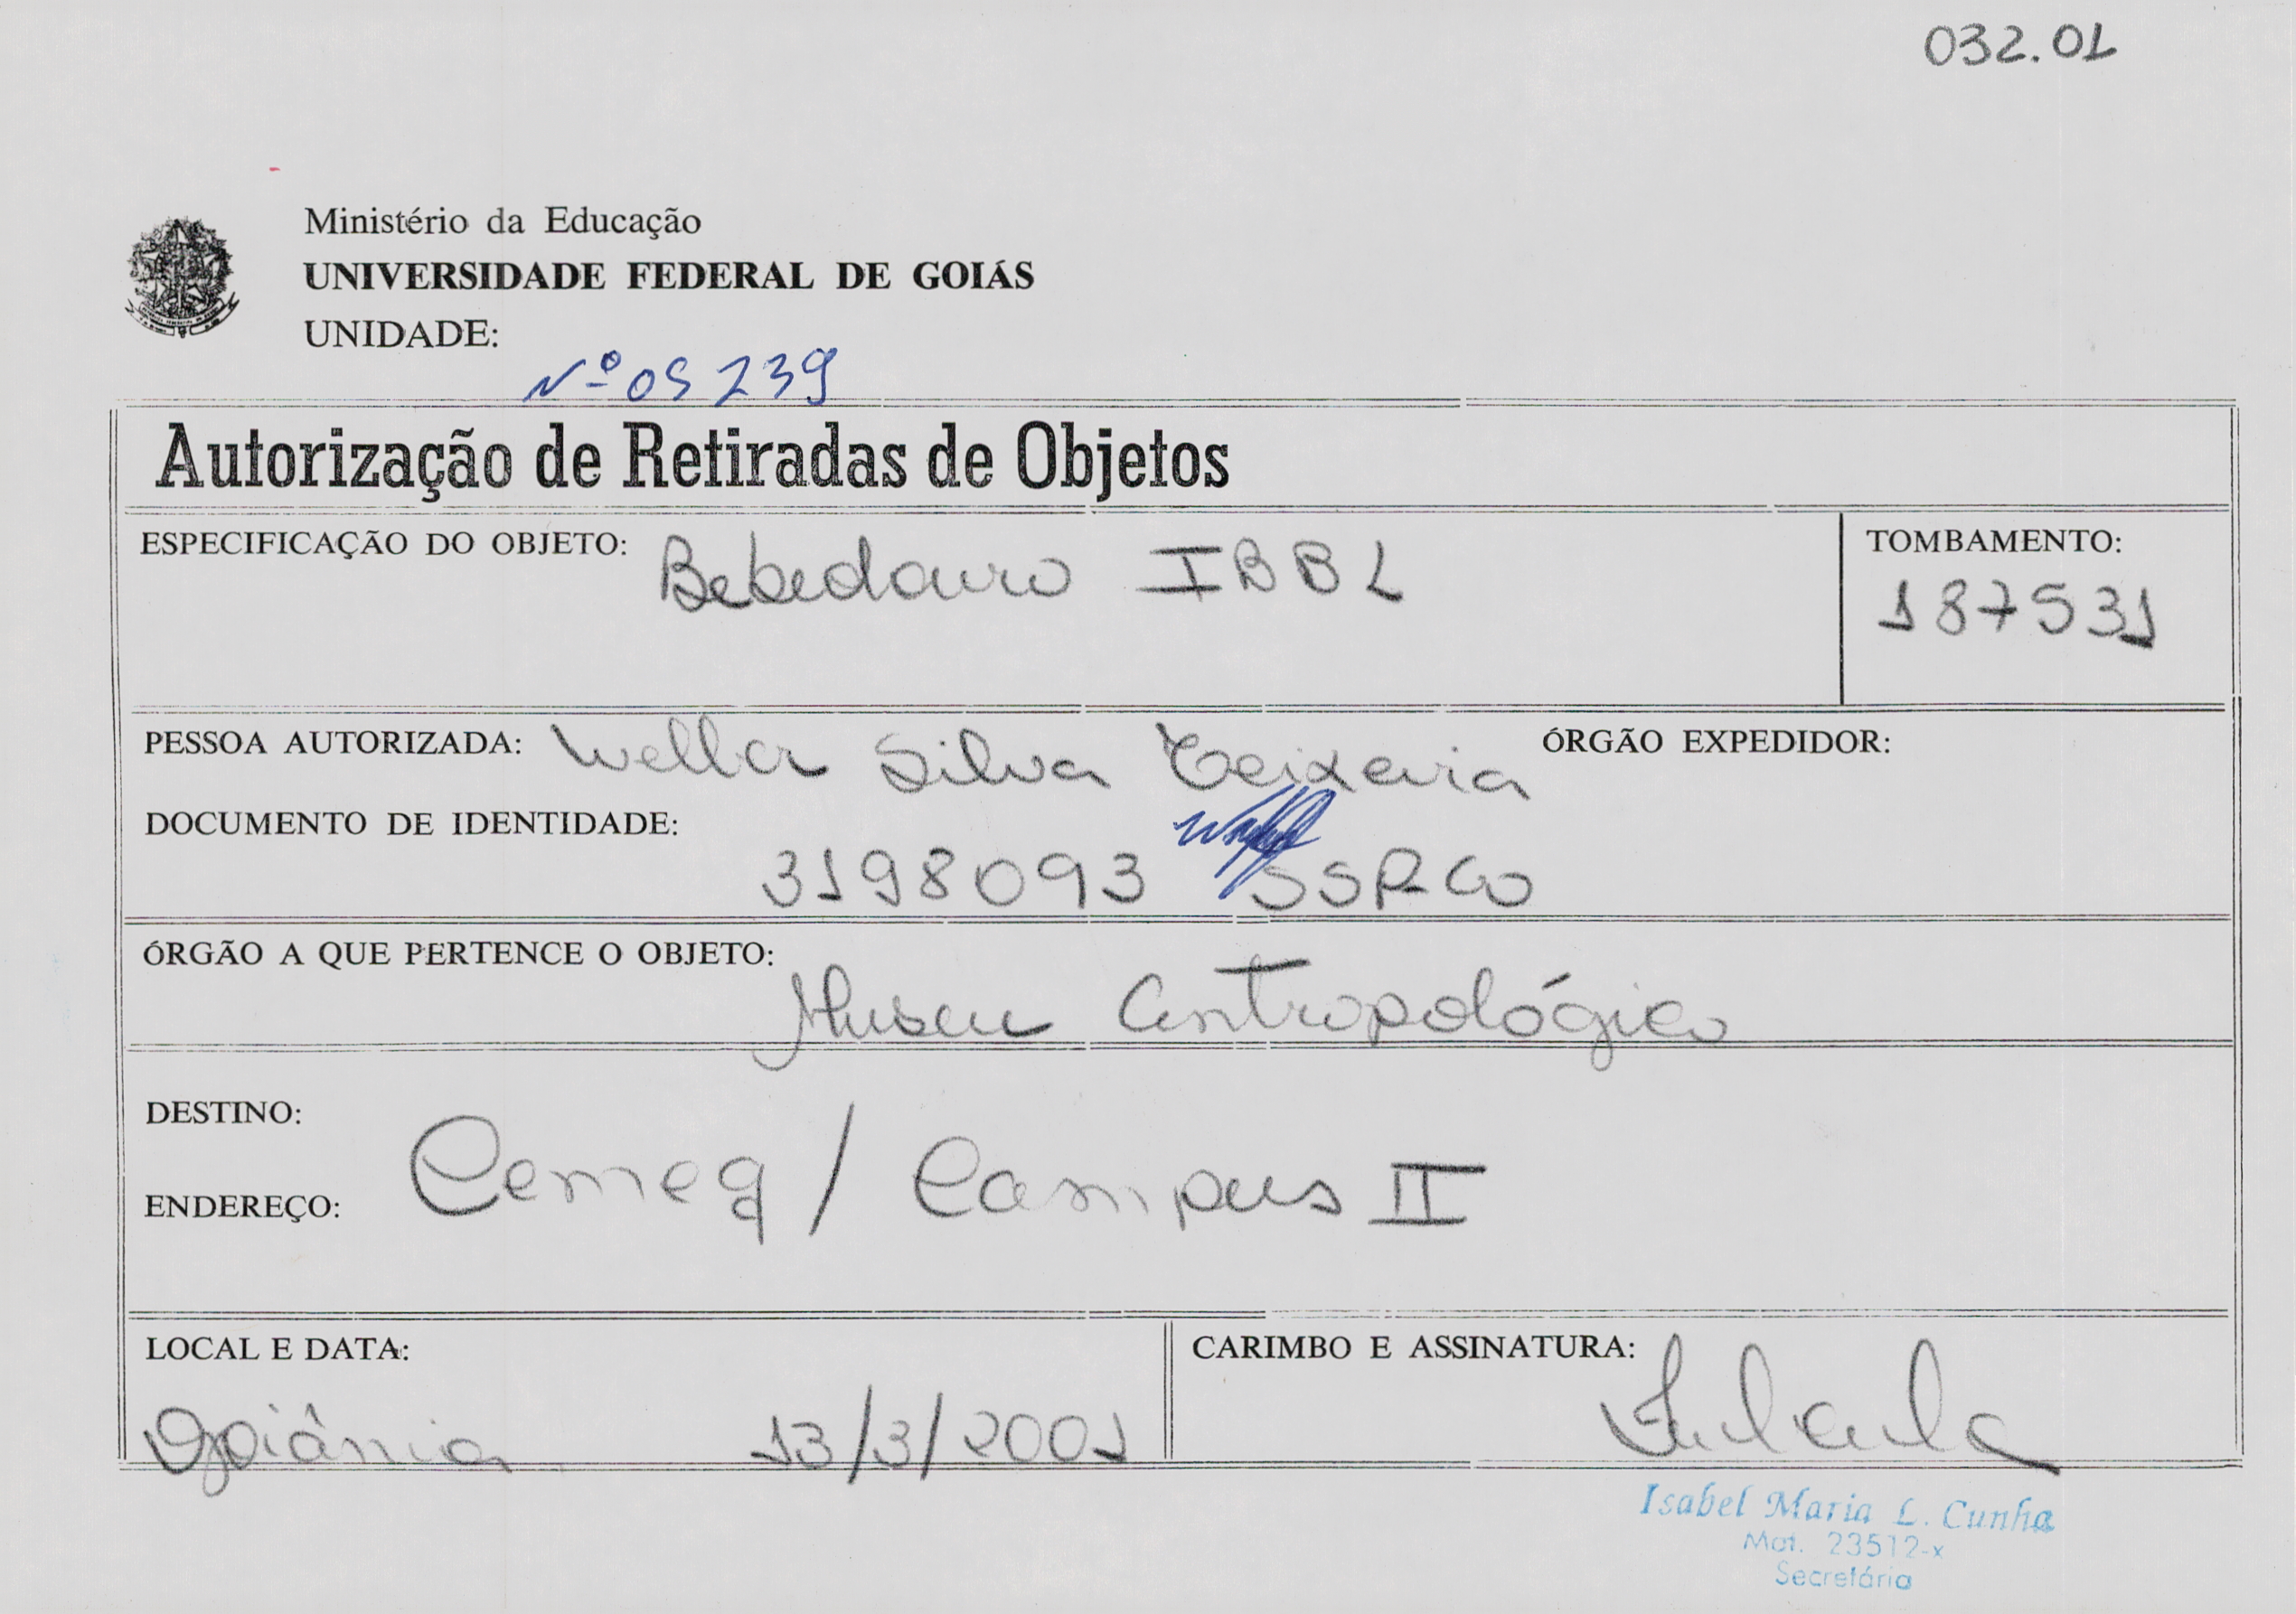 032.01
Ministério da Educação
UNIVERSIDADE FEDERAL DE GOIÁS
UNIDADE:
Nº OS 239
Autorização de Retiradas de Objetos
ESPECIFICAÇÃO DO OBJETO: Bebedouro IBBL
TOMBAMENTO:
187531
PESSOA AUTORIZADA: Silva Teixeira ÓRGÃO EXPEDIDOR:
DOCUMENTO DE IDENTIDADE:
3198093 SSP-GO
ÓRGÃO A QUE PERTENCE O OBJETO:
Museu Antropológico
DESTINO:
Cemeq / Campus II
ENDEREÇO:
LOCAL E DATA:
Goiânia 13/3/2001
CARIMBO E ASSINATURA:
Isabel Maria L. Cunha
Mat. 23512-x
Secretária